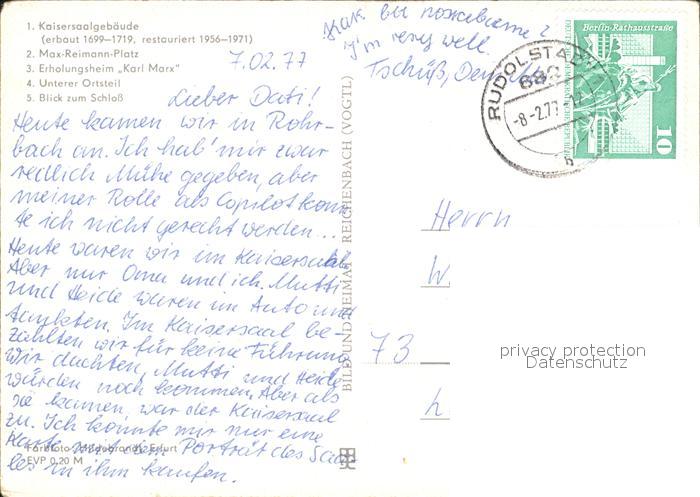 1. Kaisersaalgebäude
(erbaut 1699—1719, restauriert 1956—1971)
2. Max-Reimann-Platz
3. Erholungsheim „Karl Marx"
4. Unterer Ortsteil
5. Blick zum Schloß
7.02.77
Lieber Dati!
Heute kamen wir in Rohr-
bach an. Ich hab' mir zwar
redlich Mühe gegeben, aber
meiner Rolle als Copilot konn-
te ich nicht gerecht werden...
Heute waren wir im Kaisersaal.
Aber nur Oma und ich. Mutti
und Heide waren im Auto und
Im Kaisersaal be-
zahlten wir für keine Führung
wir dachten, Mutti und Heide
würden noch kommen. Aber als
sie kamen, war der Kaisersaal
zu. Ich konnte mir nur eine
Karte mit dem Porträt des Saa-
les in ihm kaufen.
Farbfoto: Hildebrandt, Erfurt
EVP 0,20 M
BILD UND HEIMAT REICHENBACH (VOGTL)
Как вы поживаете?
I'm very well.
Tschüß, Dein
RUDOLSTADT
682
-8.-2.77-17
h
Berlin-Rathausstraße
10
Herrn
W
73
h
privacy protection
Datenschutz